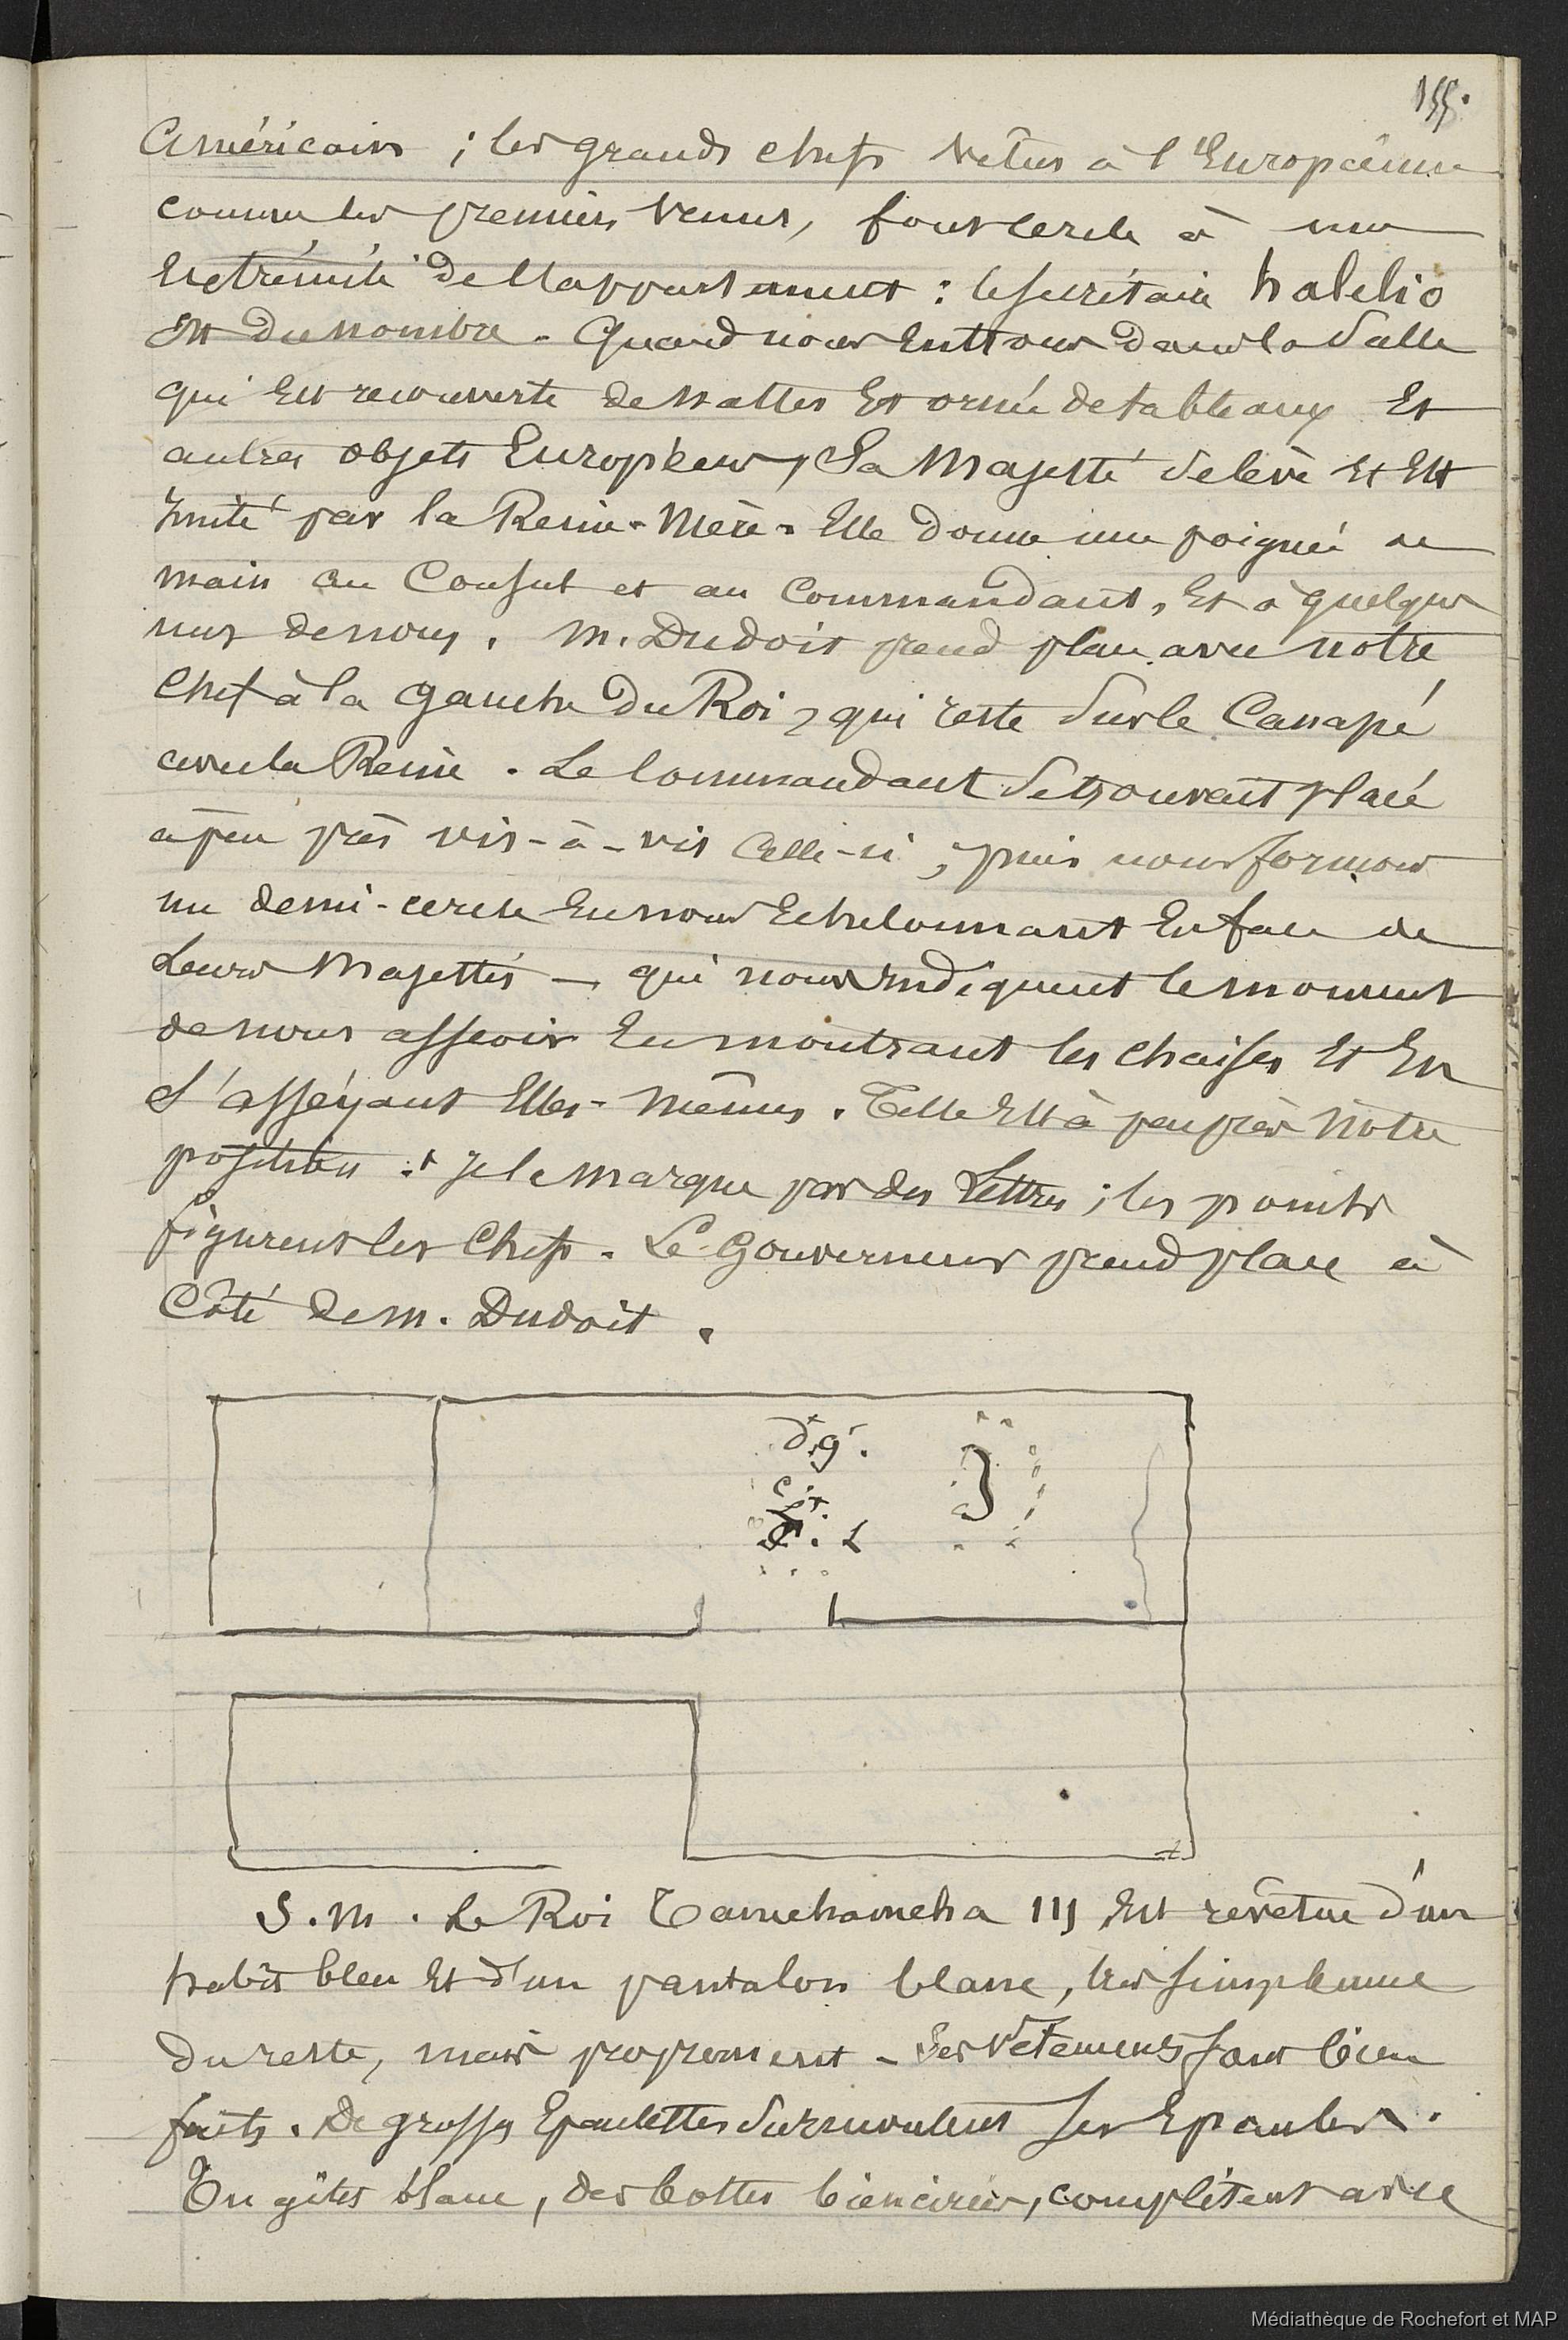 155.
Américains ; les grands chefs vêtus à l'Européenne
comme les premiers venus, font cercle à une
Extrémité de l'appartement : le secrétaire halelio
Est du nombre. Quand nous Entrons dans la Salle
qui Est recouverte de nattes Et ornée de tableaux Et
autres objets Européens, Sa Majesté se lève Et Est
imité par la Reine-Mère. Elle donne une poignée de
main au Consul et au Commandant, Et à quelques
uns de nous. M. Dudoit prend place avec notre
Chef à la gauche du Roi, qui reste sur le Canapé
avec la Reine. Le Commandant se trouvait placé
à peu près vis-à-vis Celle-ci ; puis nous formons
un demi-cercle En nous Echelonnant En face de
Leurs Majestés — qui nous indiquent le moment
de nous asseoir En montrant les chaises Et En
s'asséyant Elles-mêmes. Telle Est à peu près Notre
position : je le marque par des Lettres ; les points
figurent les Chefs. Le Gouverneur prend place à
Côté de M. Dudoit.
d. g.
S. M. Le Roi Tamehameha III Est revêtue d'un
habit bleu Et d'un pantalon blanc, très simplement
du reste, mais proprement. Ses Vêtements sont bien
faits. De grosses Epaulettes surmontent ses Epaules.
Un gilet blanc, des bottes bien cirées, complètent avec
Médiathèque de Rochefort et MAP